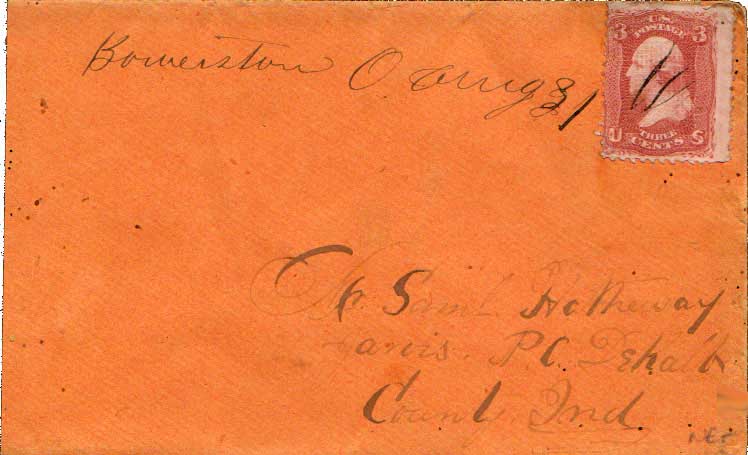 Bowerston O. Aug 31
3 U.S. POSTAGE 3
U THREE CENTS S
Mr Saml. Hotheway
P.O. Dekalb
County Ind